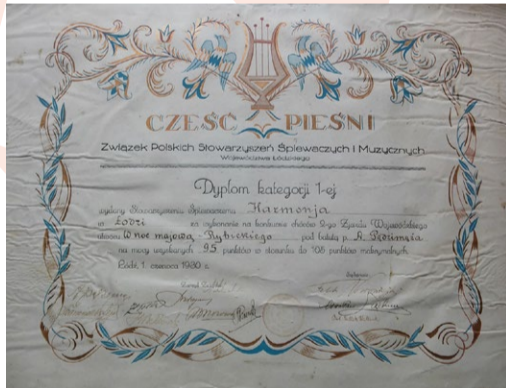 CZEŚĆ PIEŚNI
Związek Polskich Stowarzyszeń Śpiewaczych i Muzycznych
Województwa Łódzkiego
Dyplom kategorji 1-ej
wydany Stowarzyszeniu Śpiewaczemu Harmonja
w Łodzi za wykonanie na konkursie chórów 2-go Zjazdu Wojewódzkiego
utworu W noc majową - Rybickiego pod batutą p. A.
na mocy uzyskanych 95 punktów w stosunku do 105 punktów maksymalnych.
Łódź, 1 czerwca 1930 r.